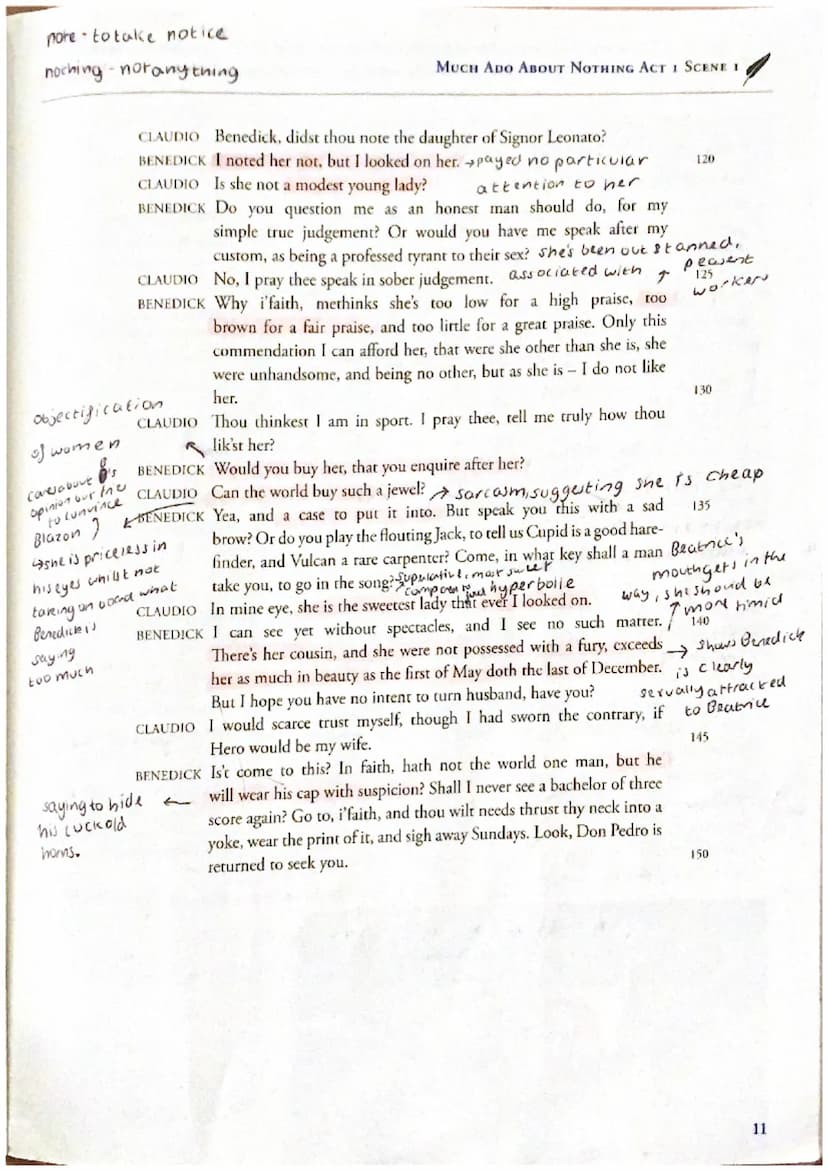 note - to take notice
noching - not anything
MUCH ADO ABOUT NOTHING ACT 1 SCENE 1
CLAUDIO Benedick, didst thou note the daughter of Signor Leonato?
BENEDICK I noted her not, but I looked on her. → payed no particular 120
CLAUDIO Is she not a modest young lady? attention to her
BENEDICK Do you question me as an honest man should do, for my
simple true judgement? Or would you have me speak after my
custom, as being a professed tyrant to their sex? she's been out stanned,
CLAUDIO No, I pray thee speak in sober judgement. associated with peasent 125
workers
BENEDICK Why i'faith, methinks she's too low for a high praise, too
brown for a fair praise, and too little for a great praise. Only this
commendation I can afford her, that were she other than she is, she
were unhandsome, and being no other, but as she is – I do not like
her. 130
objectification
of women
CLAUDIO Thou thinkest I am in sport. I pray thee, tell me truly how thou
lik'st her?
BENEDICK Would you buy her, that you enquire after her?
CLAUDIO Can the world buy such a jewel? → sarcasm, suggesting she is cheap
BENEDICK Yea, and a case to put it into. But speak you this with a sad 135
brow? Or do you play the flouting Jack, to tell us Cupid is a good hare-
finder, and Vulcan a rare carpenter? Come, in what key shall a man
take you, to go in the song?
cares about B's
opinion
to convince
Blazon
→ she is priceless in
his eyes whilst not
taking on board what
Benedick is
saying
too much
superlative, most sweet
hyperbole
Beatrice's
mouth gets in the
way, she should be
more timid
CLAUDIO In mine eye, she is the sweetest lady that ever I looked on.
BENEDICK I can see yet without spectacles, and I see no such matter. 140
There's her cousin, and she were not possessed with a fury, exceeds
her as much in beauty as the first of May doth the last of December.
But I hope you have no intent to turn husband, have you?
→ shows Benedick
is clearly
sexually attracted
to Beatrice
CLAUDIO I would scarce trust myself, though I had sworn the contrary, if
Hero would be my wife. 145
BENEDICK Is't come to this? In faith, hath not the world one man, but he
will wear his cap with suspicion? Shall I never see a bachelor of three
score again? Go to, i'faith, and thou wilt needs thrust thy neck into a
yoke, wear the print of it, and sigh away Sundays. Look, Don Pedro is
returned to seek you. 150
saying to hide
his cuckold
horns.
11